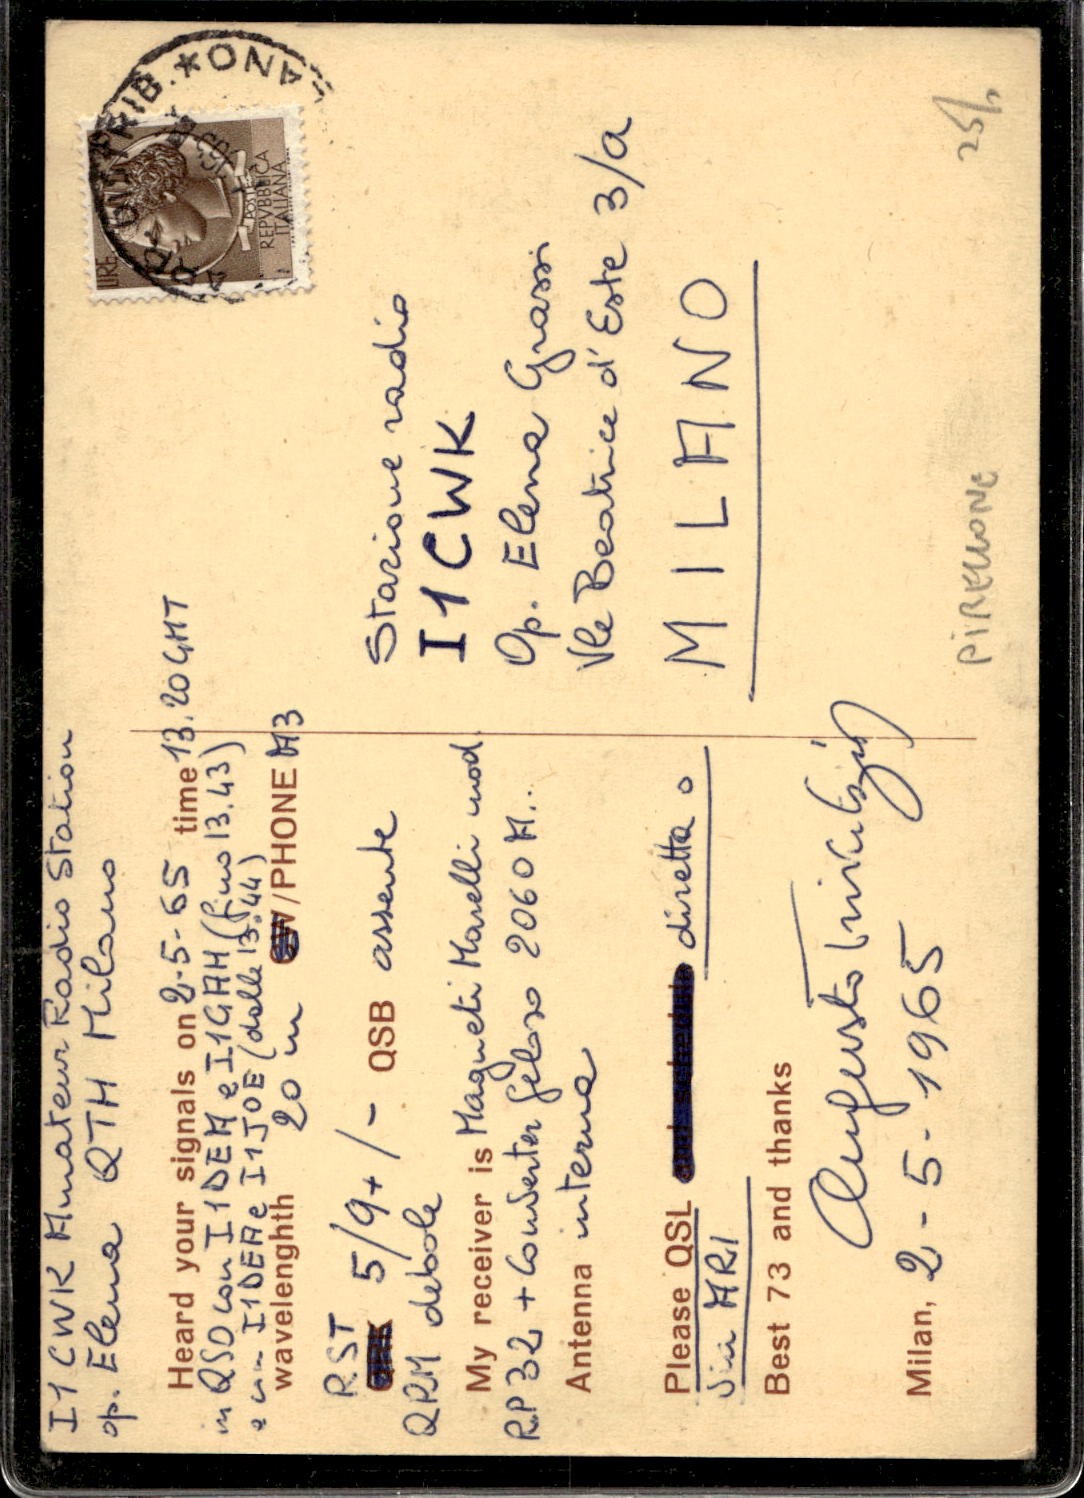 I1CWK Amateur Radio Station
op. Elena QTH Milano
Heard your signals on 2-5-65 time 13.20 GMT
in QSO con I1DEM e I1GAH (fino 13.43)
e con I1DEA e I1JOE (dalle 13.44)
wavelenghth 20 m CW/PHONE A3
RST
QRK 5/9+/- QSB assente
QRM debole
My receiver is Magneti Marelli mod.
R.P 32 + Converter Geloso 2060 M..
Antenna interna
Please QSL diretta o
via ARI
Best 73 and thanks
Augusto
Milan, 2-5-1965
LIRE
POSTE
REPVBBLICA
ITALIANA
Stazione radio
I1CWK
Op. Elena Grassi
Vle Beatrice d'Este 3/a
MILANO
PIRELLONE
25/